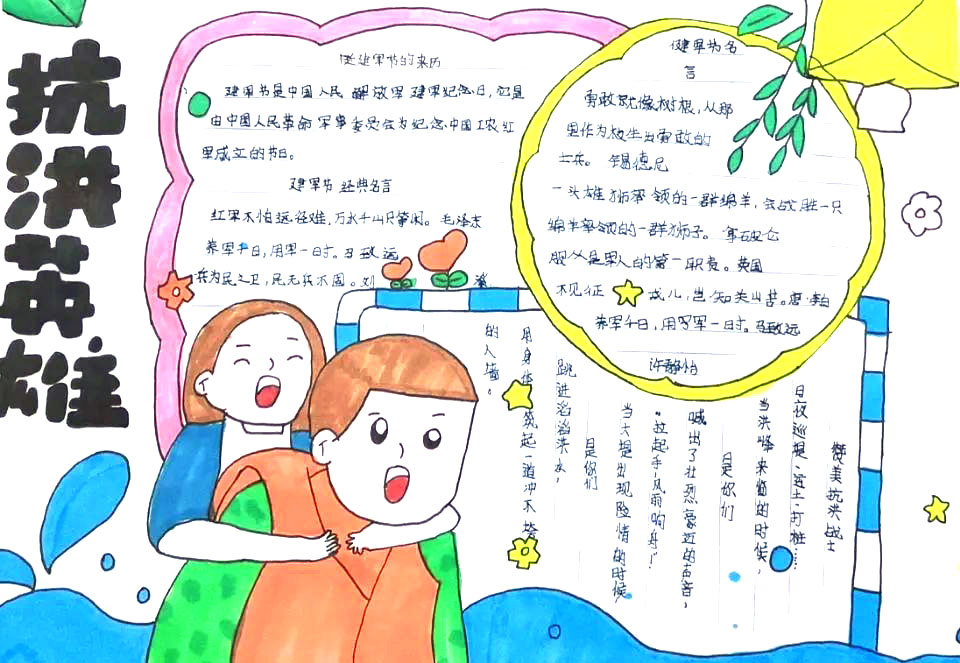 抗洪英雄
建军节的来历
建军节是中国人民解放军建军纪念日,它是
由中国人民革命军事委员会为纪念中国工农红
军成立的节日。
建军节经典名言
红军不怕远征难,万水千山只等闲。毛泽东
养军千日,用军一时。马致远
兵为民之卫,民无兵不固。刘
建军节名
言
勇敢就像树根,从那
里作为枝生出勇敢的
士兵。锡德尼
一头雄狮率领的一群绵羊,会战胜一只
绵羊率领的一群狮子。拿破仑
服从是军人的第一职责。英国
不见征戍儿,岂知关山苦。唐·李白
养军千日,用军一时。马致远
赞美抗洪战士
日夜巡堤、运土、打桩……
当洪峰来临的时候,
是你们
喊出了壮烈豪迈的声音,
“拉起手,风雨响舟!”
当大堤出现险情的时候,
是你们
跳进滔滔洪水,
用身体筑起一道冲不垮
的人墙。